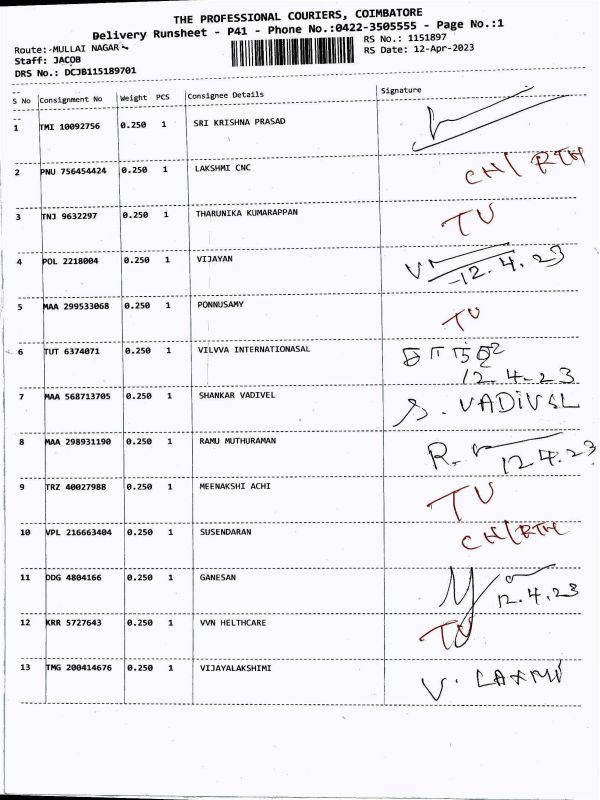 THE PROFESSIONAL COURIERS, COIMBATORE
Delivery Runsheet - P41 - Phone No.:0422-3505555 - Page No.:1
Route: MULLAI NAGAR
RS No.: 1151897
Staff: JACOB
RS Date: 12-Apr-2023
DRS No.: DCJB115189701
S No Consignment No Weight PCS Consignee Details Signature
1 TMI 10092756 0.250 1 SRI KRISHNA PRASAD
2 PNU 756454424 0.250 1 LAKSHMI CNC CH/RTH
3 TNJ 9632297 0.250 1 THARUNIKA KUMARAPPAN TU
4 POL 2218004 0.250 1 VIJAYAN 12.4.23
5 MAA 299533068 0.250 1 PONNUSAMY TU
6 TUT 6374071 0.250 1 VILVVA INTERNATIONASAL
12.4-23
7 MAA 568713705 0.250 1 SHANKAR VADIVEL S. VADIVEL
8 MAA 298931190 0.250 1 RAMU MUTHURAMAN R. 12.4.23
9 TRZ 40027988 0.250 1 MEENAKSHI ACHI TU
10 VPL 216663404 0.250 1 SUSENDARAN CH/RTH
11 DDG 4804166 0.250 1 GANESAN 12.4.23
12 KRR 5727643 0.250 1 VVN HELTHCARE TU
13 TMG 200414676 0.250 1 VIJAYALAKSHIMI V. LAXMI